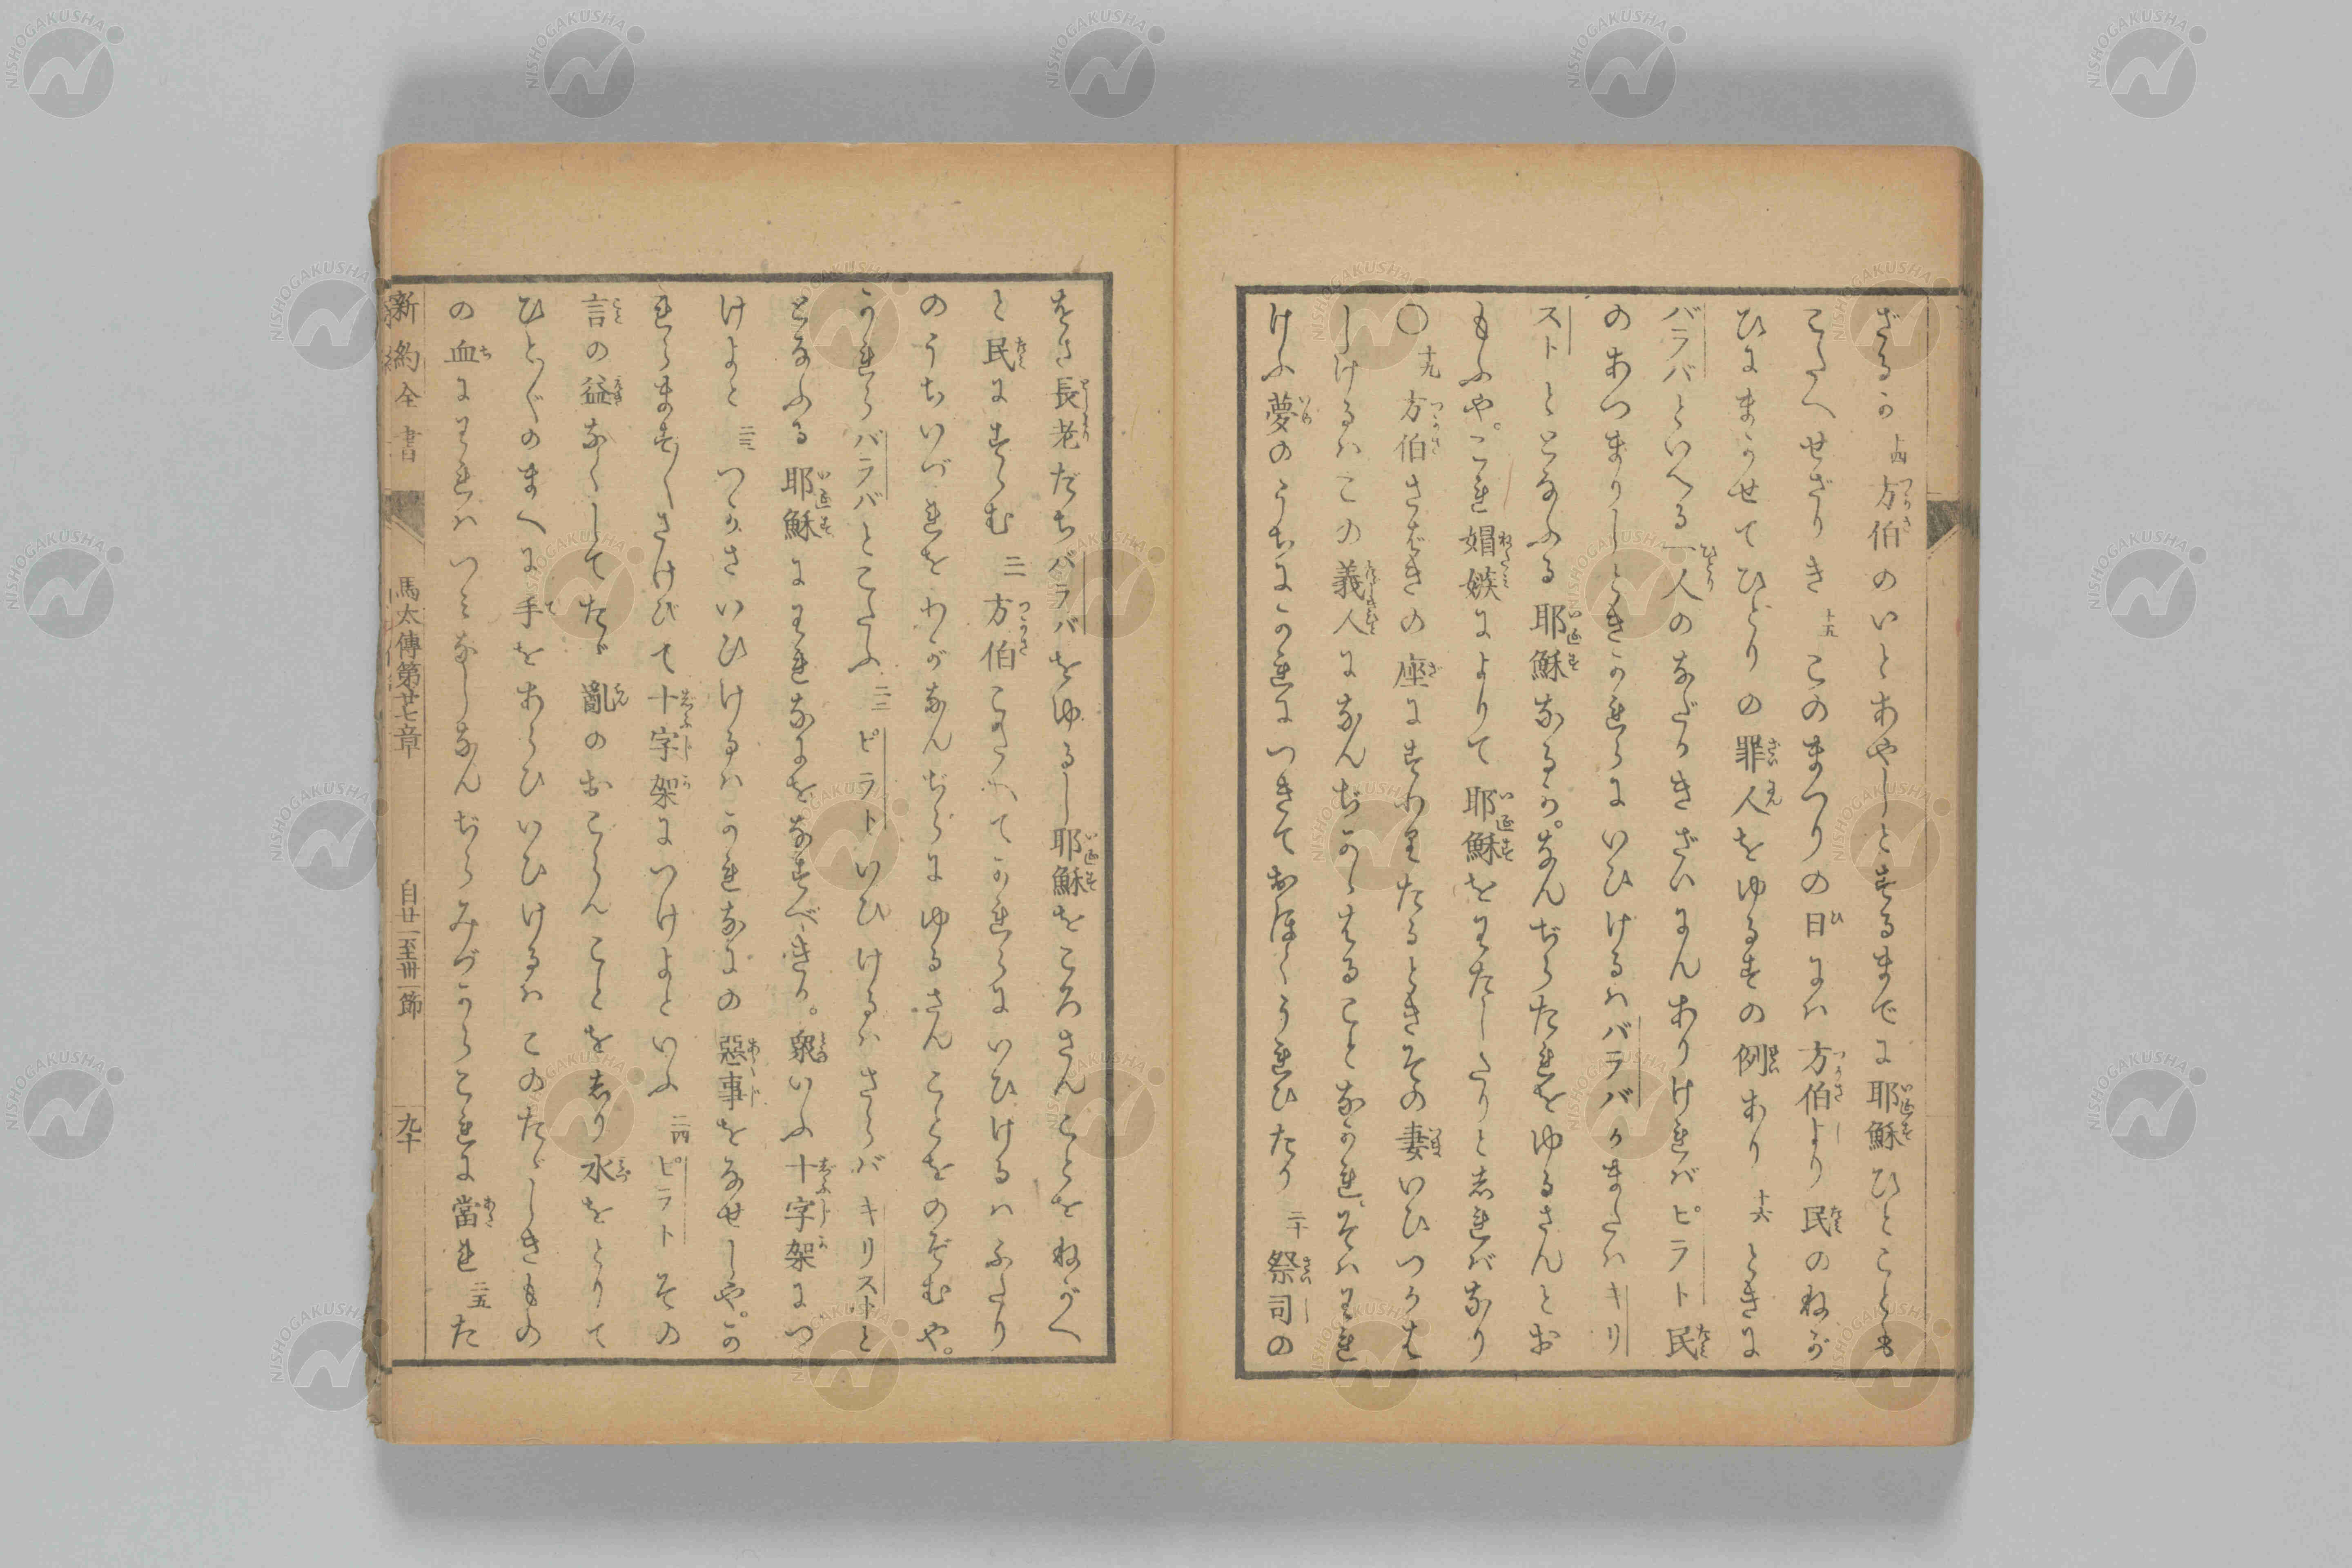 ざるか 十四 方伯のいとあやしとするまでに耶穌ひとことも
こたへせざりき 十五 このまつりの日にハ方伯より民のねが
ひにまかせてひとりの罪人をゆるすの例あり 十六 ときに
バラバといへる一人のなだかきざいにんありければピラト民
のあつまりしときかれらにいひけるハバラバかまたハキリ
ストととなふる耶穌なるか。なんぢらたれをゆるさんとお
もふや。これ媢嫉によりて耶穌をわたしたりとしれバなり
〇 十九 方伯さばきの座にすわりたるときその妻いひつかは
しけるハこの義人になんぢかゝはることなかれ。そハわれ
けふ夢のうちにかれにつきておほくうれひたり 二十 祭司の
をさ長老たちバラバをゆるし耶穌をころさんことをねがへ
と民にすゝむ 二一 方伯こたへてかれらにいひけるハふたり
のうちいづれをわがなんぢらにゆるさんことをのぞむや。
かれらバラバとこたふ 二二 ピラトいひけるハさらバキリストと
となふる耶穌にわれなにをなすべきか。衆いふ十字架につ
けよと 二三 つかさいひけるハかれなにの惡事をなせしや。か
れらますますさけびて十字架につけよといふ 二四 ピラトその
言の益なくしてたゞ亂のおこらんことをしり水をとりて
ひとびとのまへに手をあらひいひけるハこのたゞしきもの
の血にわれハつみなしなんぢらみづからこれに當れ 二五 た
新約全書 馬太傳第廿七章 自廿一至卅一節 九十